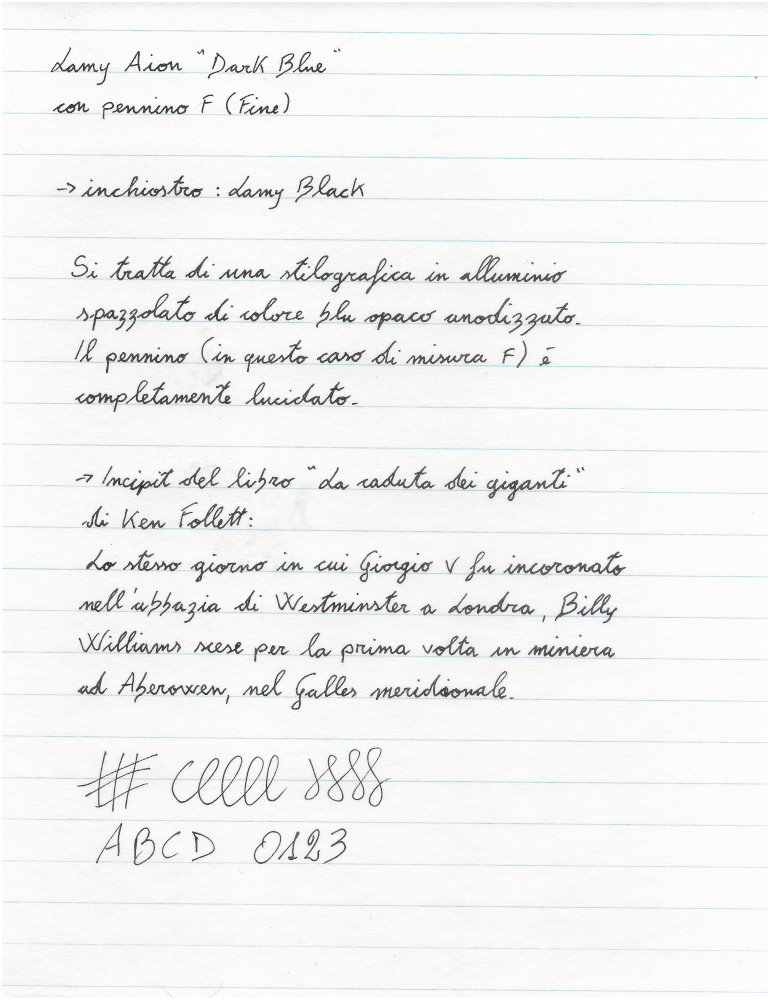 Lamy Aion "Dark Blue"
con pennino F (Fine)
→ inchiostro : Lamy Black
Si tratta di una stilografica in alluminio
spazzolato di colore blu opaco anodizzato.
Il pennino (in questo caso di misura F) è
completamente lucidato.
→ Incipit del libro "La caduta dei giganti"
di Ken Follett:
Lo stesso giorno in cui Giorgio V fu incoronato
nell'abbazia di Westminster a Londra, Billy
Williams scese per la prima volta in miniera
ad Aberowen, nel Galles meridionale.
ABCD 0123